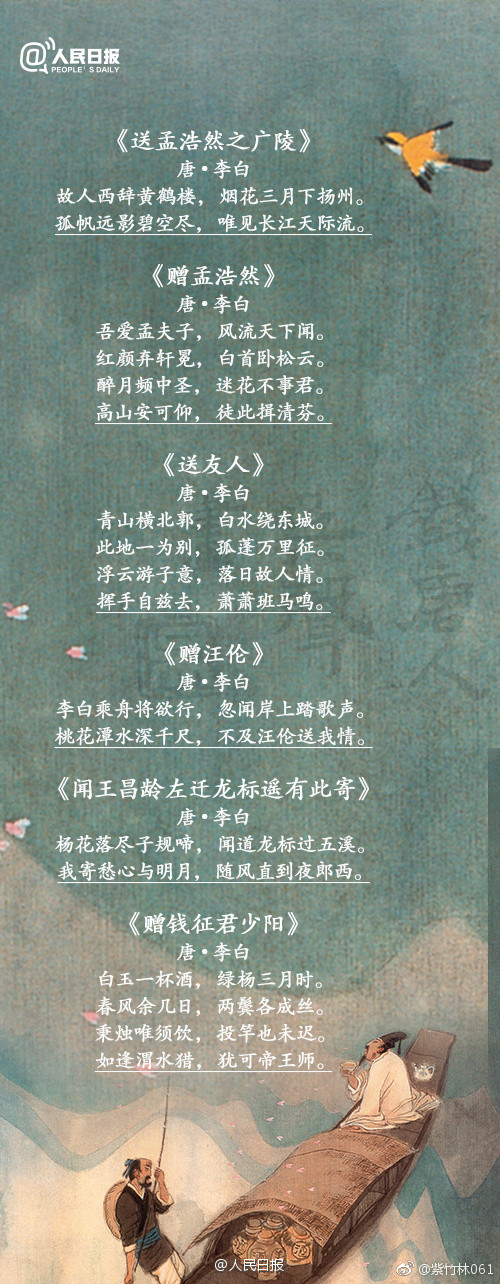 @人民日报
PEOPLE'S DAILY
《送孟浩然之广陵》
唐·李白
故人西辞黄鹤楼，烟花三月下扬州。
孤帆远影碧空尽，唯见长江天际流。
《赠孟浩然》
唐·李白
吾爱孟夫子，风流天下闻。
红颜弃轩冕，白首卧松云。
醉月频中圣，迷花不事君。
高山安可仰，徒此揖清芬。
《送友人》
唐·李白
青山横北郭，白水绕东城。
此地一为别，孤蓬万里征。
浮云游子意，落日故人情。
挥手自兹去，萧萧班马鸣。
《赠汪伦》
唐·李白
李白乘舟将欲行，忽闻岸上踏歌声。
桃花潭水深千尺，不及汪伦送我情。
《闻王昌龄左迁龙标遥有此寄》
唐·李白
杨花落尽子规啼，闻道龙标过五溪。
我寄愁心与明月，随风直到夜郎西。
《赠钱征君少阳》
唐·李白
白玉一杯酒，绿杨三月时。
春风余几日，两鬓各成丝。
秉烛唯须饮，投竿也未迟。
如逢渭水猎，犹可帝王师。
@人民日报
@紫竹林061